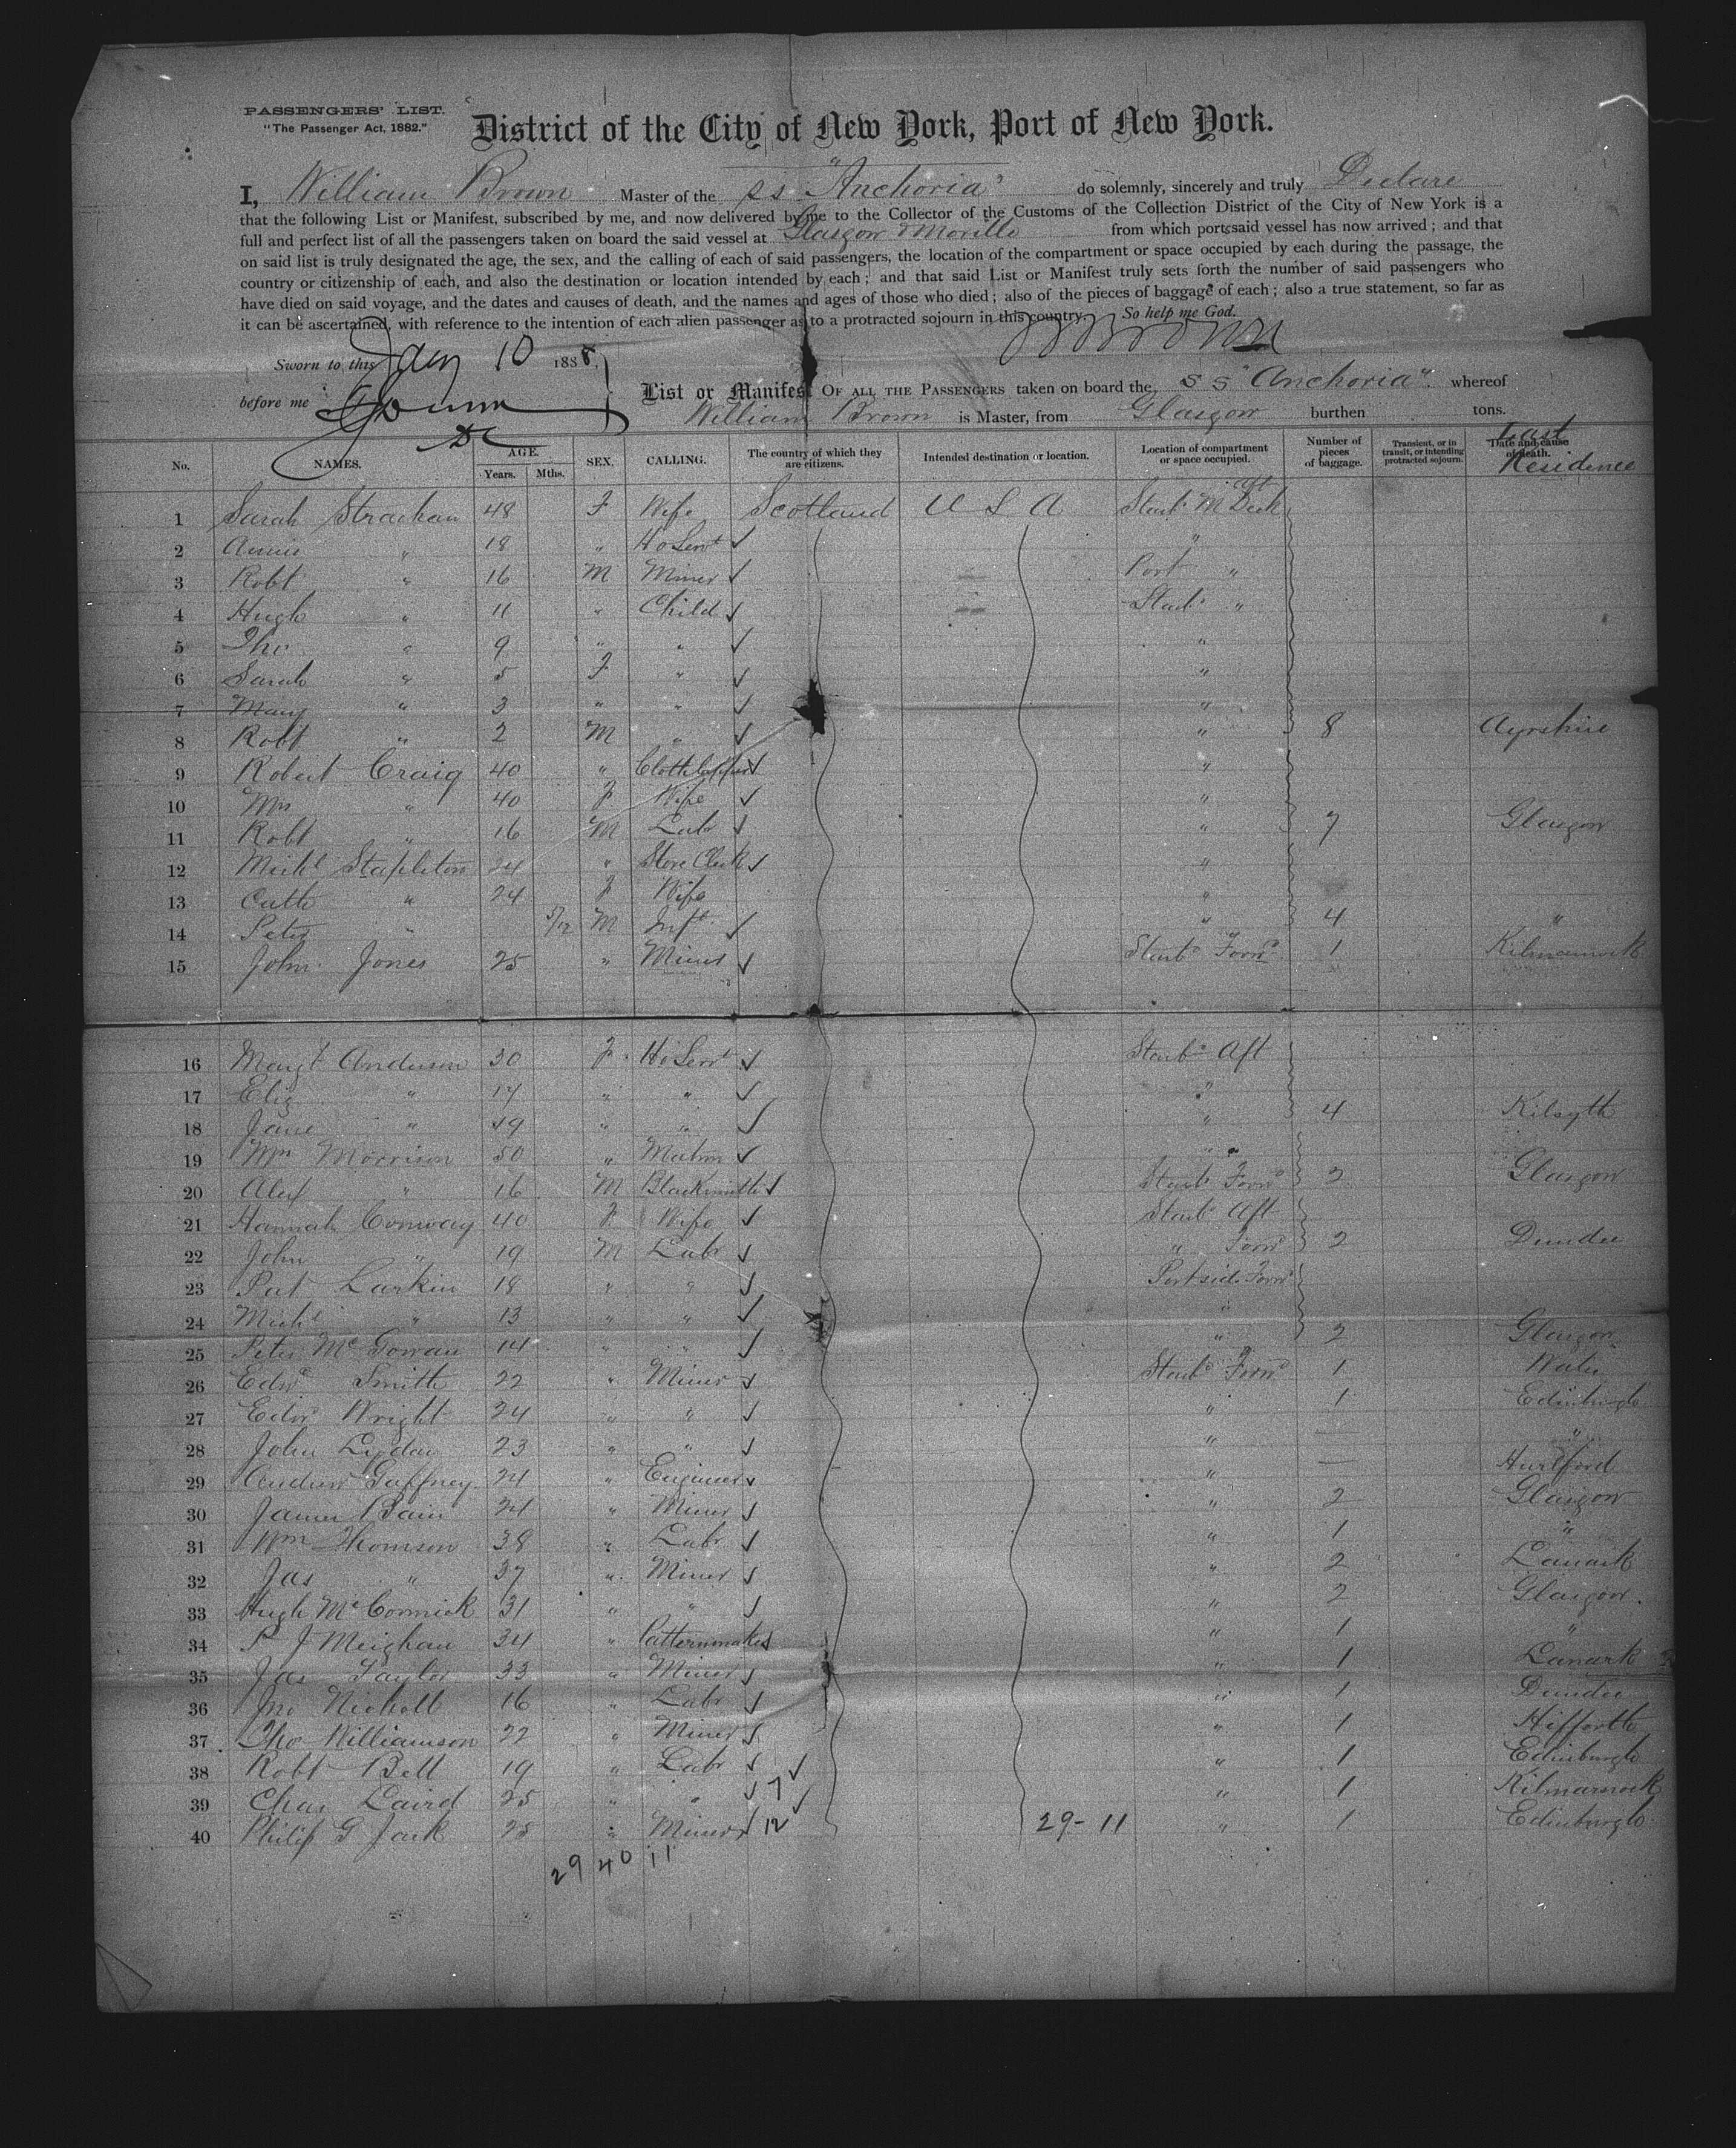 PASSENGERS' LIST.
"The Passenger Act, 1882."
District of the City of New York, Port of New York.
I, William Brown Master of the SS "Anchoria" do solemnly, sincerely and truly Declare
that the following List or Manifest, subscribed by me, and now delivered by me to the Collector of the Customs of the Collection District of the City of New York is a
full and perfect list of all the passengers taken on board the said vessel at Glasgow & Moville from which ports said vessel has now arrived; and that
on said list is truly designated the age, the sex, and the calling of each of said passengers, the location of the compartment or space occupied by each during the passage, the
country or citizenship of each, and also the destination or location intended by each; and that said List or Manifest truly sets forth the number of said passengers who
have died on said voyage, and the dates and causes of death, and the names and ages of those who died; also of the pieces of baggage of each; also a true statement, so far as
it can be ascertained, with reference to the intention of each alien passenger as to a protracted sojourn in this country. So help me God.
Sworn to this Jany 10 1888. W Brown
before me
List or Manifest OF ALL THE PASSENGERS taken on board the SS "Anchoria" whereof
William Brown is Master, from Glasgow burthen tons.
No. NAMES. AGE. Years. Mths. SEX. CALLING. The country of which they are citizens. Intended destination or location. Location of compartment or space occupied. Number of pieces of baggage. Transient, or in transit, or intending protracted sojourn. Date and cause of death. Last Residence
1 Sarah Strachan 48 F Wife Scotland U S A Starbd M Deck aft
2 Annie " 18 " Ho Servt "
3 Robt " 16 M Miner Port "
4 Hugh " 11 " Child Starbd "
5 Tho " 9 " " "
6 Sarah " 5 F " "
7 Mary " 3 " " "
8 Robt " 2 M " " 8 Ayrshire
9 Robert Craig 40 " "
10 Mrs " 40 F Wife "
11 Robt " 16 M Labr " 7 Glasgow
12 Michl Stapleton 24 " Store Clerk "
13 Cath " 24 F Wife "
14 Peter " 5/12 M Inft " 4 "
15 John Jones 25 " Miner Starbd Forwd 1 Kilmarnock
16 Margt Anderson 30 F Ho Servt Starbd Aft
17 Eliz " 17 " " "
18 Jane " 19 " " " 4 Kilsyth
19 Mrs Morrison 50 " Matron "
20 Alex " 16 M Blacksmith Starbd Forwd 2 Glasgow
21 Hannah Conway 40 F Wife Starbd Aft
22 John " 19 M Labr " Forwd 2 Dundee
23 Pat Larkin 18 " " Portside Forwd
24 Michl " 13 " " "
25 Peter McGowan 14 " " " 2 Glasgow
26 Edwd Smith 22 " Miner Starbd Forwd 1
27 Edwd Wright 24 " " " 1 Edinburgh
28 John 23 " " " — "
29 Andrew Gaffney 24 " Engineer " — Hurlford
30 James Bain 24 " Miner " 2 Glasgow
31 Wm Thomson 38 " Labr " 1 "
32 Jas " 37 " Miner " 2 Lanark
33 Hugh McCormick 31 " " " 2 Glasgow
34 P J Meighan 34 " Patternmaker " 1 "
35 Jas Taylor 33 " Miner " 1 Lanark
36 Jno Nicholl 16 " Labr " 1 Dundee
37 Tho Williamson 22 " Miner " 1
38 Robt Bell 19 " Labr " 1 Edinburgh
39 Chas Laird 25 " " 7 " 1 Kilmarnock
40 Philip G Jack 28 " Miner 12 29-11 " 1 Edinburgh
29 40 11